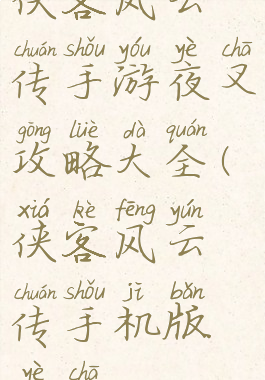 侠客风云
chuán shǒu yóu yè chā
传手游夜叉
gōng lüè dà quán
攻略大全(
xiá kè fēng yún
侠客风云
chuán shǒu jī bǎn
传手机版
yè chā